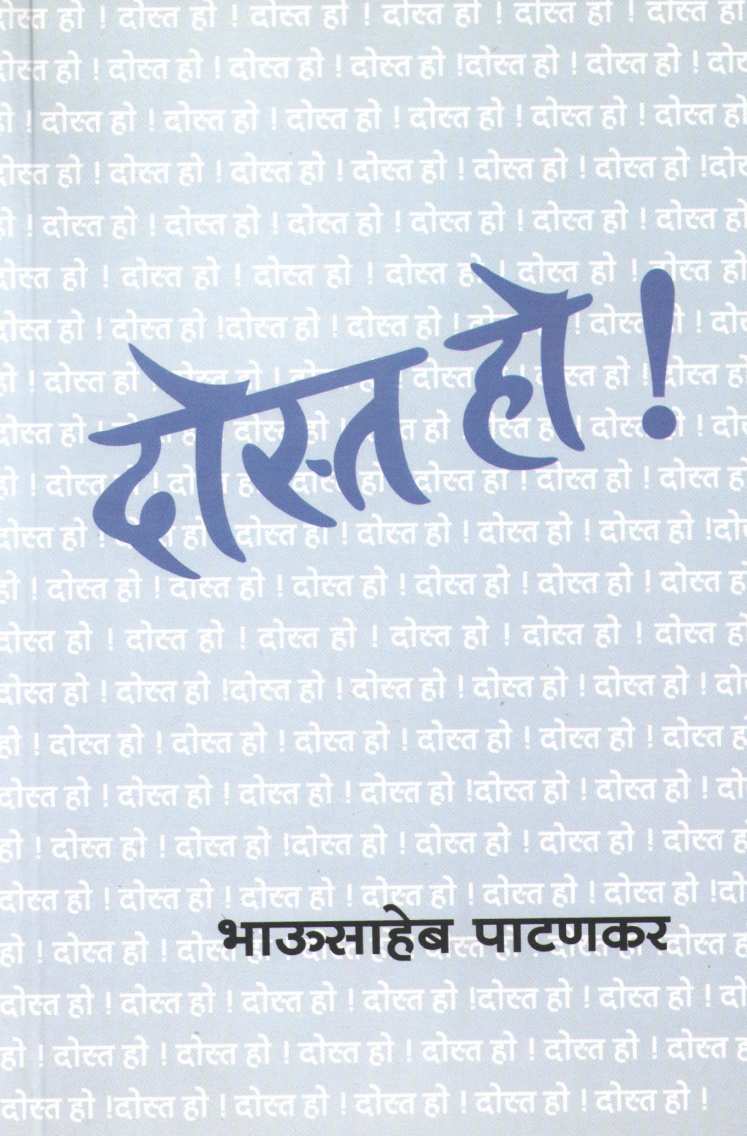 हो ! दोस्त हो ! दोस्त हो ! दोस्त हो ! दोस्त हो ! दोस्त हो
हो ! दोस्त हो ! दोस्त हो ! दोस्त हो !दोस्त हो ! दोस्त हो !
हो ! दोस्त हो ! दोस्त हो ! दोस्त हो ! दोस्त हो ! दोस्त हो ! दोस्त हो
दोस्त हो ! दोस्त हो ! दोस्त हो ! दोस्त हो ! दोस्त हो ! दोस्त हो !
हो ! दोस्त हो ! दोस्त हो ! दोस्त हो ! दोस्त हो ! दोस्त हो ! दोस्त हो
दोस्त हो ! दोस्त हो ! दोस्त हो ! दोस्त हो ! दोस्त हो ! दोस्त हो
दोस्त हो ! दोस्त हो !दोस्त हो ! दोस्त हो ! हो !
दोस्त हो !
हो ! दोस्त हो ! दोस्त ! दोस्त हो ! दोस्त हो
दोस्त हो ! दोस्त हो ! हो ! दोस्त हो ! दोस्त हो !
हो ! दोस्त हो ! दोस्त हो ! दोस्त हो ! दोस्त हो
दोस्त हो ! हो ! दोस्त हो ! दोस्त हो ! दोस्त हो ! दोस्त हो !
हो ! दोस्त हो ! दोस्त हो ! दोस्त हो ! दोस्त हो ! दोस्त हो ! दोस्त हो
दोस्त हो ! दोस्त हो ! दोस्त हो ! दोस्त हो ! दोस्त हो ! दोस्त हो
दोस्त हो ! दोस्त हो !दोस्त हो ! दोस्त हो ! दोस्त हो ! दोस्त हो !
हो ! दोस्त हो ! दोस्त हो ! दोस्त हो ! दोस्त हो ! दोस्त हो ! दोस्त
दोस्त हो ! दोस्त हो ! दोस्त हो ! दोस्त हो !दोस्त हो ! दोस्त हो !
हो ! दोस्त हो ! दोस्त हो !दोस्त हो ! दोस्त हो ! दोस्त हो ! दोस्त
दोस्त हो ! दोस्त हो ! दोस्त हो ! दोस्त हो ! दोस्त हो ! दोस्त हो !
भाऊसाहेब पाटणकर
हो ! दोस्त हो ! दोस्त दोस्त
दोस्त हो ! दोस्त हो ! दोस्त हो ! दोस्त हो !दोस्त हो ! दोस्त हो !
हो ! दोस्त हो ! दोस्त हो ! दोस्त हो ! दोस्त हो ! दोस्त हो ! दोस्त
दोस्त हो !दोस्त हो ! दोस्त हो ! दोस्त हो ! दोस्त हो ! दोस्त हो !